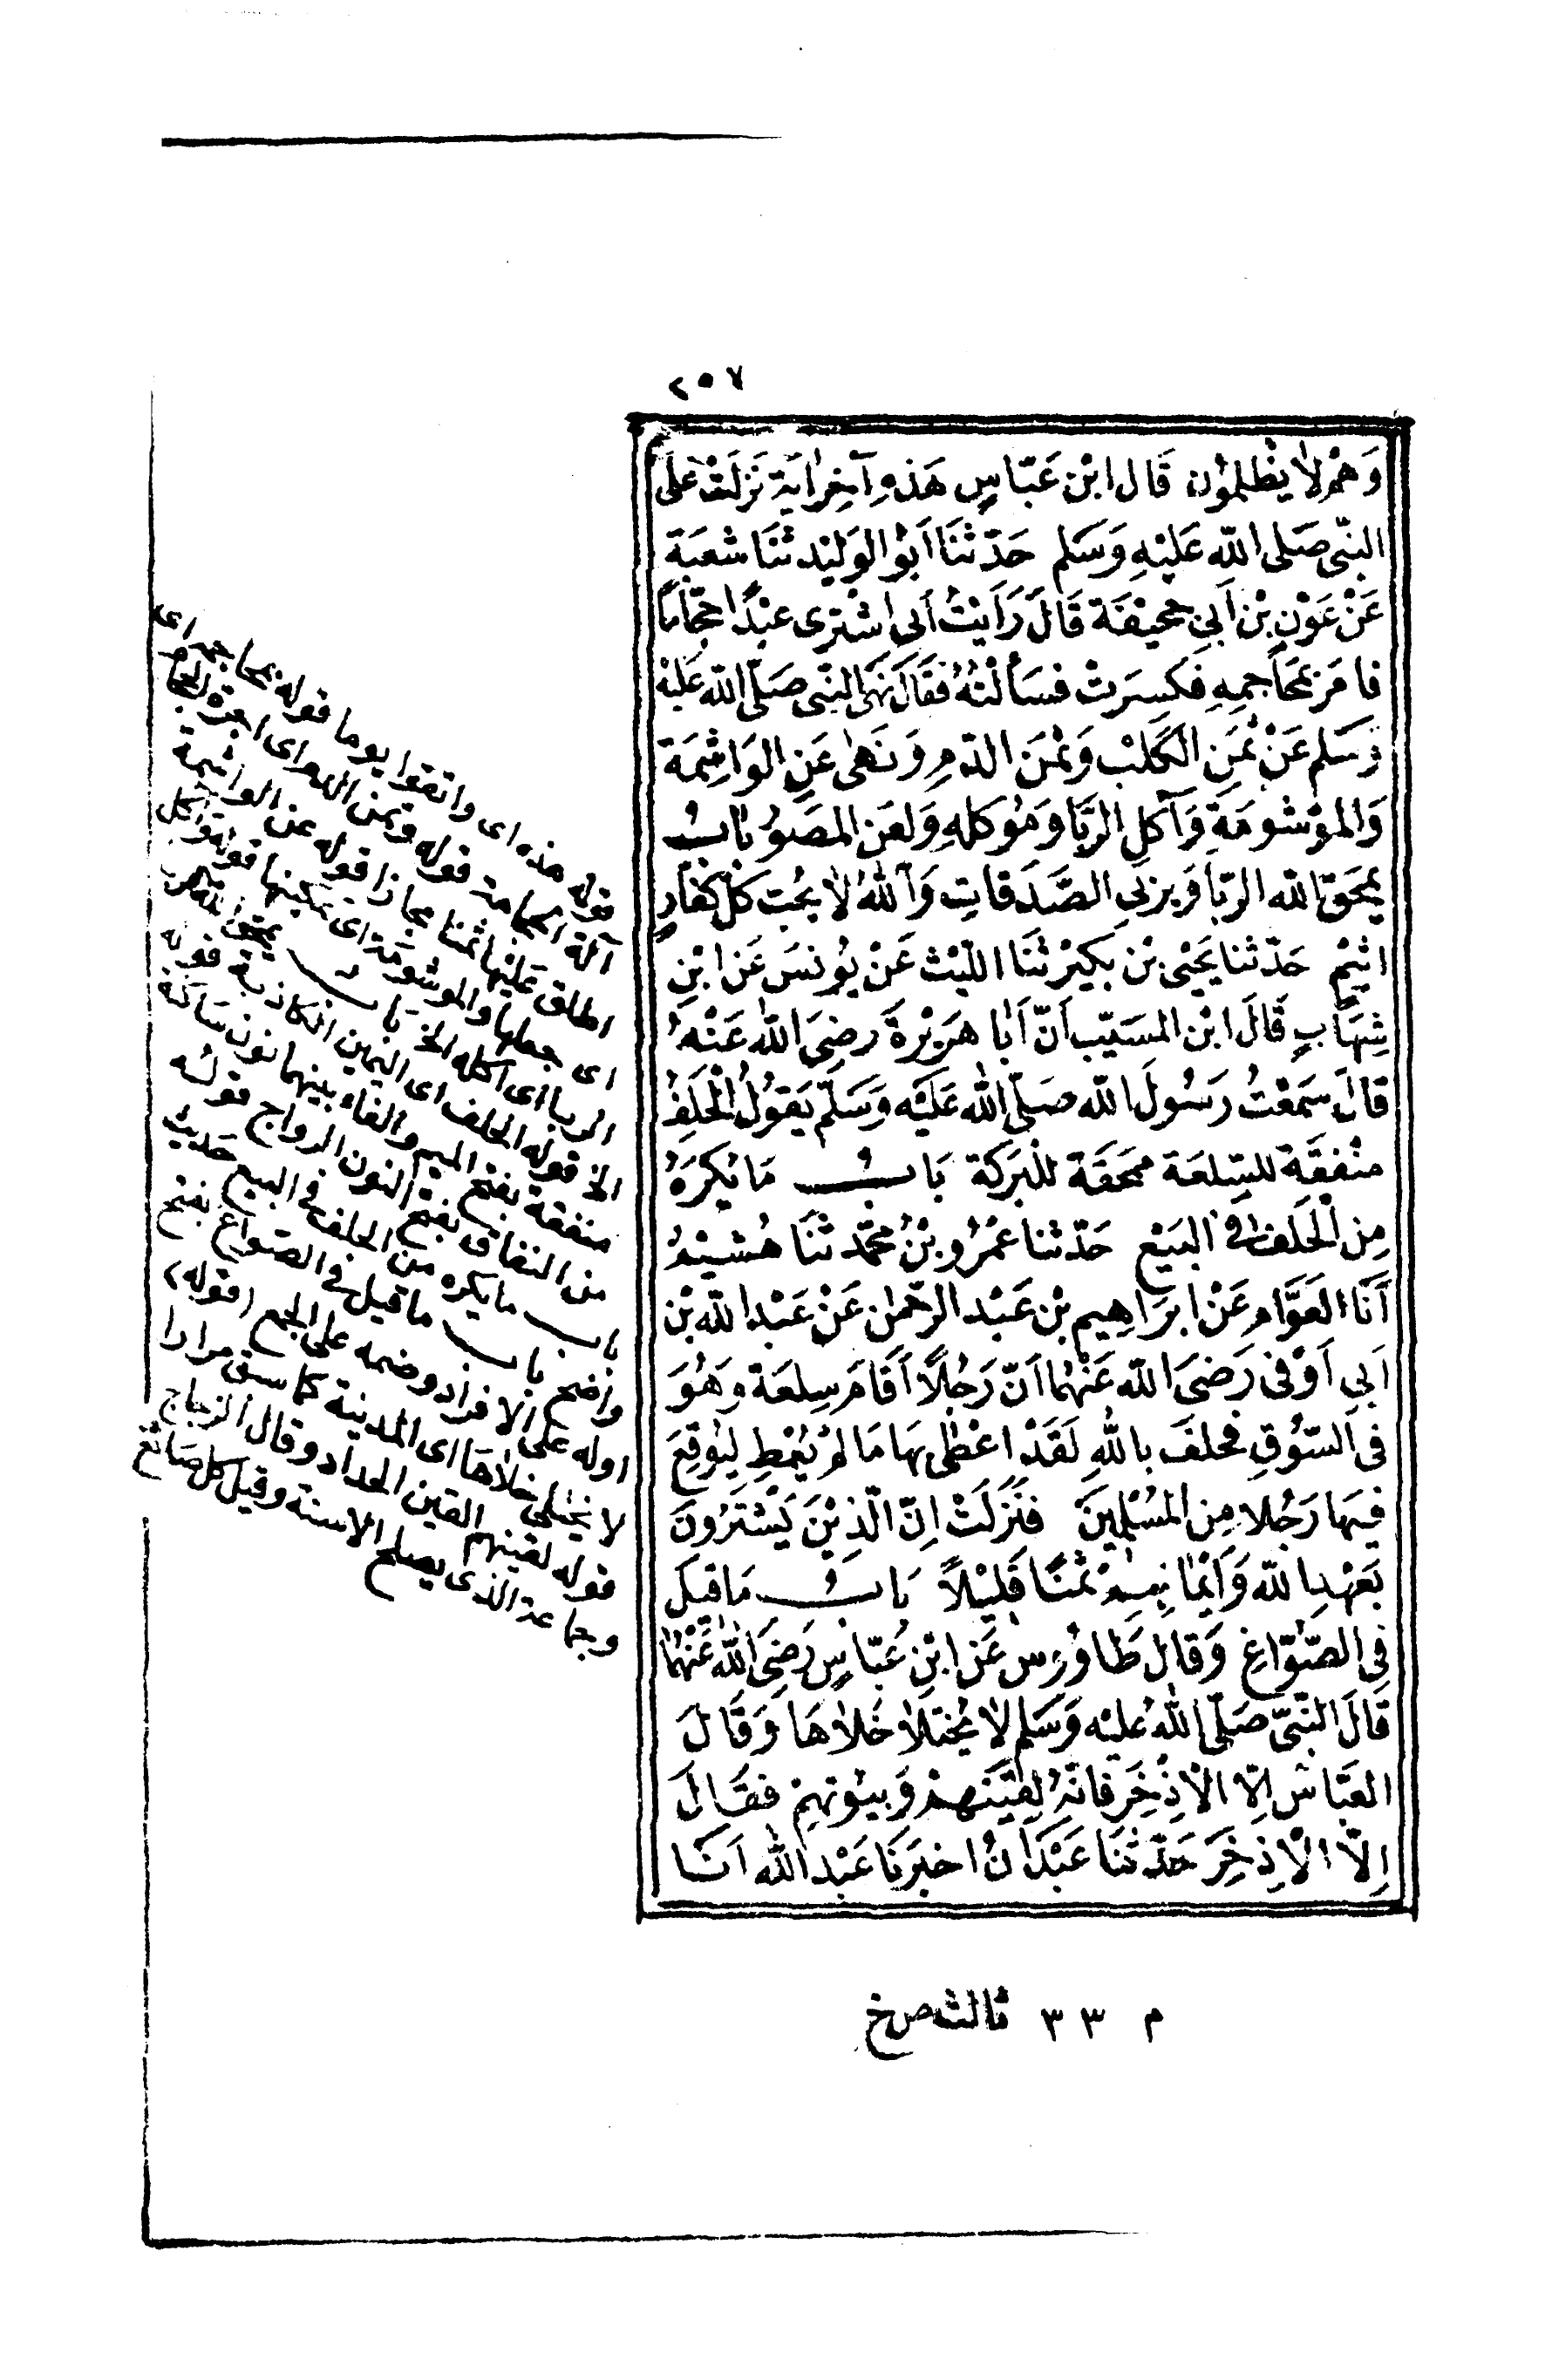 ٢٥٧
وَهُمْ لَا يُظْلَمُونَ قَالَ ابْن عَبّاسٍ هَذِهِ آخِرُ آيَةٍ نَزَلَتْ عَلَى
النبّى صَلى الله عَلَيْهِ وَسَلم حَدّثنَا اَبُو الوَليْد ثنَا شعبَة
عَنْ عَوْنِ بْن اَبِي جحَيْفَة قَالَ رَاَيْتُ اَبي اشْتَرى عبْدًا حجّامًا
فامَرَ بمَحَاجمِهِ فكسِرَتْ فسَألْتُهُ فقَالَ نَهَى النبّى صَلّى الله عَليْه
وَسَلم عَنْ ثمَنِ الكَلبْ وَثمَن الدّمِ وَنَهىٰ عَنِ الوَاشِمَة
وَالموْشومَةِ وَآكلِ الرّبَا وَمُوكلهِ وَلعَن المصَوّر بَابُ
يمْحَق الله الرّبا وَيربي الصَّدَقاتِ وَاللهُ لا يحُبّ كلّ كفّارٍ
اثيْمٍ حَدّثنا يحَيْى بْن بكيرْ ثنَا الليْث عَنْ يُونسَ عَن ابْنِ
شِهَابٍ قَالَ ابْن المسَيّب اَنّ اَبَا هرَيْرةَ رضِىَ الله عَنْهُ
قالَ سَمعْتُ رَسُولَ الله صَلّى الله عَليَه وَسَلّم يَقوُلُ الْحَلِفُ
منْفقَة للسّلعَة ممحَقَة للبَرَكة بَابُ مَا يُكرَهُ
مِن الْحَلفِ فى البيَعْ حَدّثنا عَمْرُو بْنُ محمّد ثنَا هُشيْمُ
اَنَا العَوَّام عَنْ ابرَاهِيم بْن عَبْد الرّحمٰن عَنْ عَبْد الله بْن
اَبِي اَوْفى رَضىَ الله عَنْهمَا اَنّ رَجُلًا اَقَامَ سِلعَة وَهُوَ
فى السّوُقِ فحَلفَ باللهِ لَقَدْ اعْطى بهَا مَا لمْ يُعْطِ ليُوقِعَ
فيهَا رَجُلا مِن المُسْلمِينَ فنَزَلَتْ اِنّ الّذِيْنَ يَشْتَرُونَ
بَعَهْدِ الله وَاَيْمَانهِمْ ثمنًا قليْلاً بَابُ مَا قيلَ
فِى الصَّوّاغِ وَقال طَاوُس عَن ابْنِ عَبّاسٍ رَضِىَ الله عَنْهُمَا
قَالَ النّبىّ صَلّى اللهُ عليْه وَسَلم لا يُختلَا خَلاهَا وَقَالَ
العَبّاس اِلّا الْاِذْخِرَ فانّهُ لِقَيْنَهمْ وَبيُوتهِمْ فقَالَ
اِلّا الْاِذخِرَ حَدّثنَا عَبْدَانُ اخبرَنَا عَبْد الله اَنَا
قوله هذه اى واتقوا يوما قوله بمحاجمه اى
آلة الحجامة قوله وثمن الدم اى اجرة الحجام
اطلق عليها ثمنا مجازا قوله عن الواشمة
اى جعلها والموشومة اى تمكينها قوله وآكل
الربا اى اكله الخ باب يمحق الله الربا
الخ قوله الحلف اى اليمين الكاذبة قوله
منفقة بفتح الميم والفاء بينهما نون ساكنة
من النفاق بفتح النون الرواج قوله
باب ما يكره من الحلف فى البيع حديث
واضح باب ما قيل فى الصواغ بفتح
اوله على الافراد وضمه على الجمع قوله
لا يختلى خلاها اى المدينة كما سبق مرارا
قوله لقينهم القين الحداد وقال الزجاج
وجماعة الذى يصلح الاسنة وقيل كل صائغ
م ٣٣ ثالث ص خ